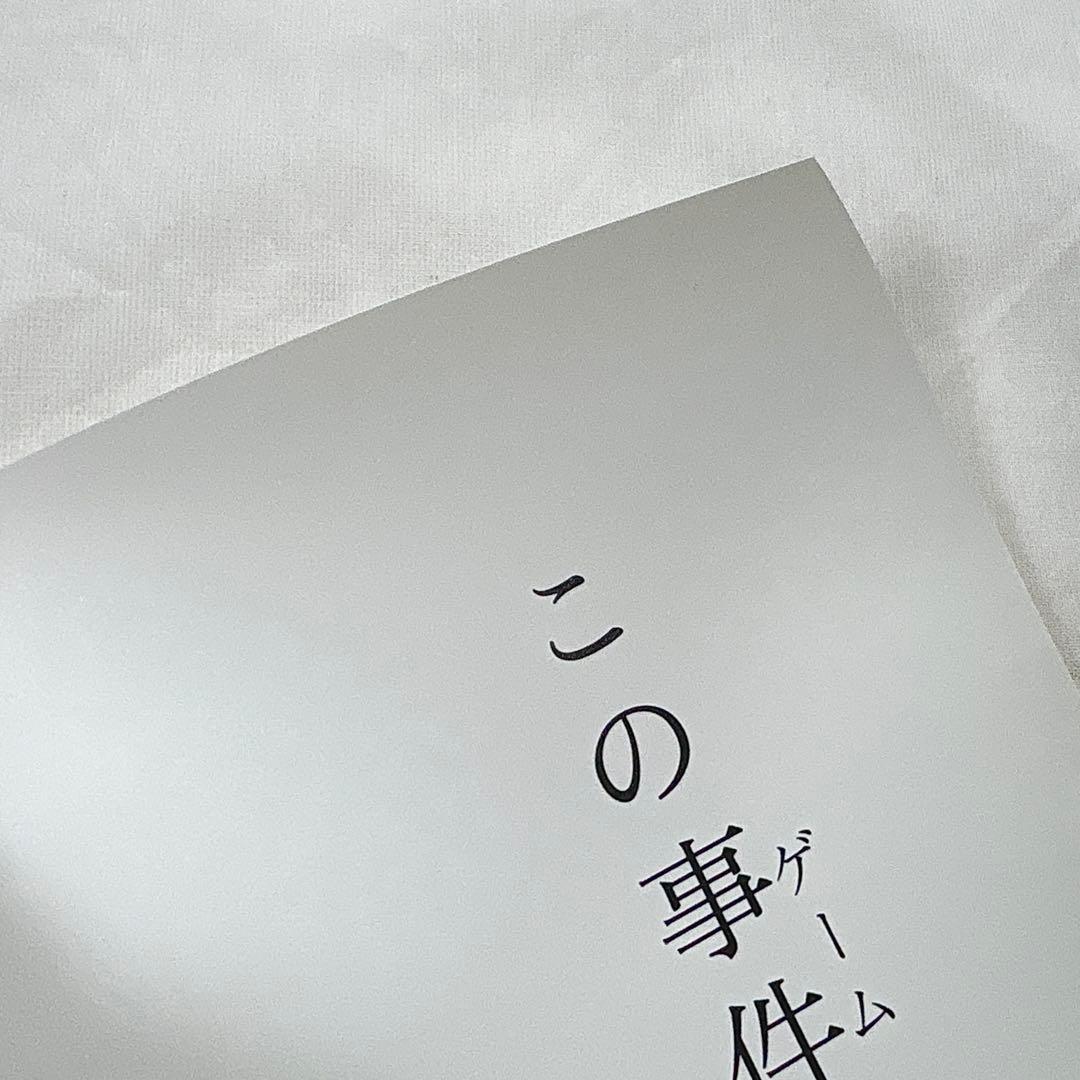 この事件
ゲーム